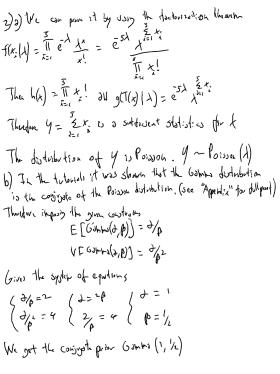 2) a) We can prove it by using the factorization theorem
f(x;|λ) = ∏_{i=1}^{5} e^{-λ} λ^{x_i} / x_i! = e^{-5λ} λ^{∑_{i=1}^{5} x_i} / ∏_{i=1}^{5} x_i!
Then h(x) = ∏_{i=1}^{5} x_i! and g(T(x)|λ) = e^{-5λ} λ^{∑_{i=1}^{5} x_i}
Therefore y = ∑_{i=1}^{5} x_i is a sufficient statistics for λ
The distribution of y is Poisson. y ~ Poisson(λ)
b) In the tutorials it was shown that the Gamma distribution
is the conjugate of the Poisson distribution. (see "Appendix" for full proof)
Therefore imposing the given constrains
E[Gamma(α,β)] = α/β
V[Gamma(α,β)] = α/β²
Gives the system of equations
{ α/β = 2 { α = 2β { α = 1
{ α/β² = 4 { 2/β = 4 { β = 1/2
We get the conjugate prior Gamma(1, 1/2)